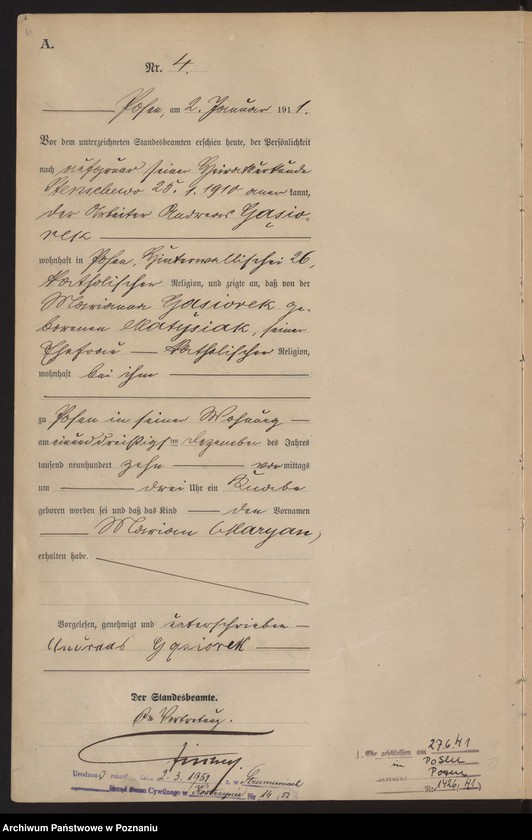 A.
Nr. 4.
Posen, am 2. Januar 1911.
Vor dem unterzeichneten Standesbeamten erschien heute, der Persönlichkeit
nach aufgrund seiner Heiratsurkunde
Stenschewo 25. 1. 1910 aner kannt,
der Arbeiter Andreas Gąsio-
rek
wohnhaft in Posen, Hinterwallischei 26,
katholischer Religion, und zeigte an, daß von der
Marianna Gąsiorek ge-
borenen Matysiak, seiner
Ehefrau katholischer Religion,
wohnhaft bei ihm
zu Posen in seiner Wohnung
am einunddreißigsten Dezember des Jahres
tausend neunhundert zehn vormittags
um drei Uhr ein Knabe
geboren worden sei und daß das Kind den Vornamen
Marian (Maryan)
erhalten habe.
Vorgelesen, genehmigt und unterschrieben
Andreas Gąsiorek
Der Standesbeamte.
In Vertretung.
2. 3. 1951
Urząd Stanu Cywilnego w Kostrzynie Nr 14
1. Ehe geschlossen am 27.6.41
in Posen
Posen
Nr. 1426/41
Archiwum Państwowe w Poznaniu